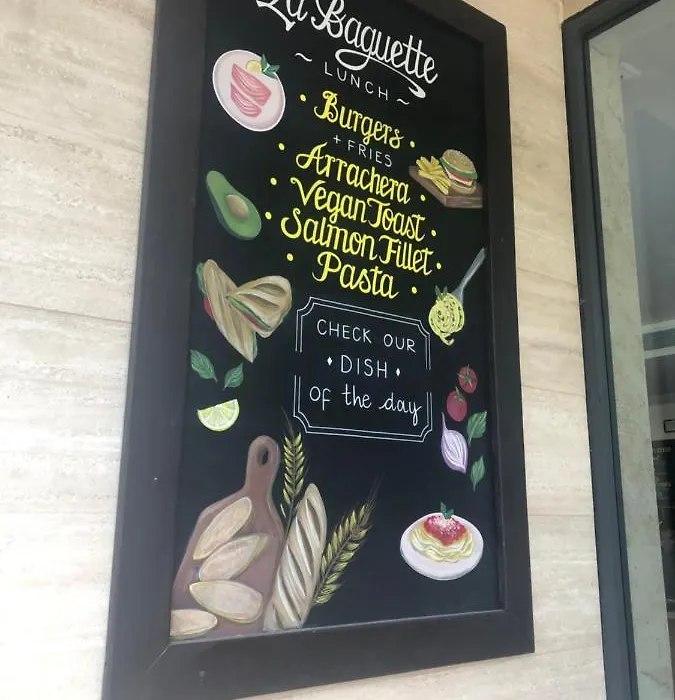 La Baguette
~ LUNCH ~
• Burgers •
+ FRIES
• Arrachera •
• Vegan Toast •
• Salmon Fillet •
• Pasta •
CHECK OUR
• DISH •
of the day